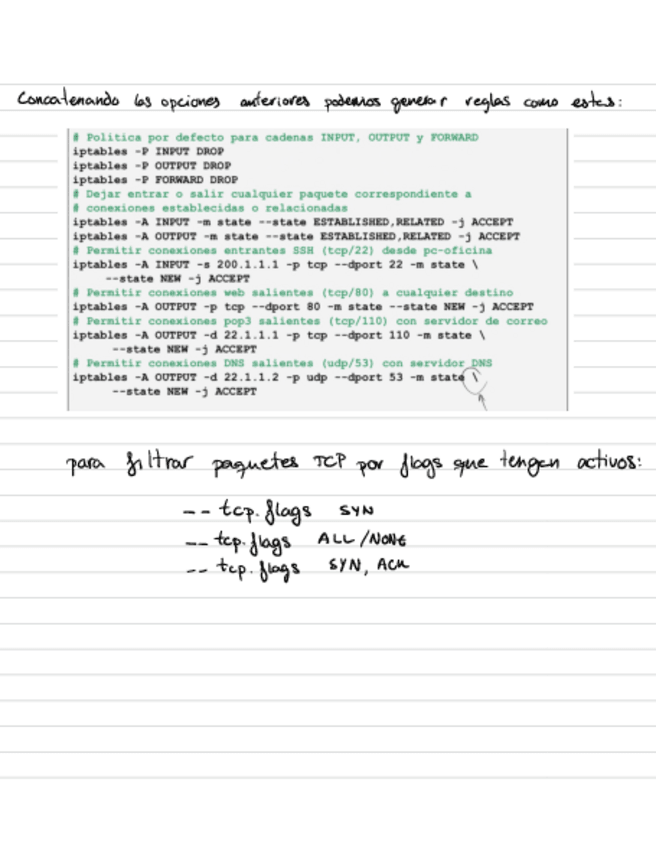 Concatenando las opciones anteriores podemos generar reglas como estas:
# Política por defecto para cadenas INPUT, OUTPUT y FORWARD
iptables -P INPUT DROP
iptables -P OUTPUT DROP
iptables -P FORWARD DROP
# Dejar entrar o salir cualquier paquete correspondiente a
# conexiones establecidas o relacionadas
iptables -A INPUT -m state --state ESTABLISHED,RELATED -j ACCEPT
iptables -A OUTPUT -m state --state ESTABLISHED,RELATED -j ACCEPT
# Permitir conexiones entrantes SSH (tcp/22) desde pc-oficina
iptables -A INPUT -s 200.1.1.1 -p tcp --dport 22 -m state \
--state NEW -j ACCEPT
# Permitir conexiones web salientes (tcp/80) a cualquier destino
iptables -A OUTPUT -p tcp --dport 80 -m state --state NEW -j ACCEPT
# Permitir conexiones pop3 salientes (tcp/110) con servidor de correo
iptables -A OUTPUT -d 22.1.1.1 -p tcp --dport 110 -m state \
--state NEW -j ACCEPT
# Permitir conexiones DNS salientes (udp/53) con servidor DNS
iptables -A OUTPUT -d 22.1.1.2 -p udp --dport 53 -m state \
--state NEW -j ACCEPT
para filtrar paquetes TCP por flags que tengan activos:
-- tcp.flags SYN
-- tcp.flags ALL/NONE
-- tcp.flags SYN, ACK